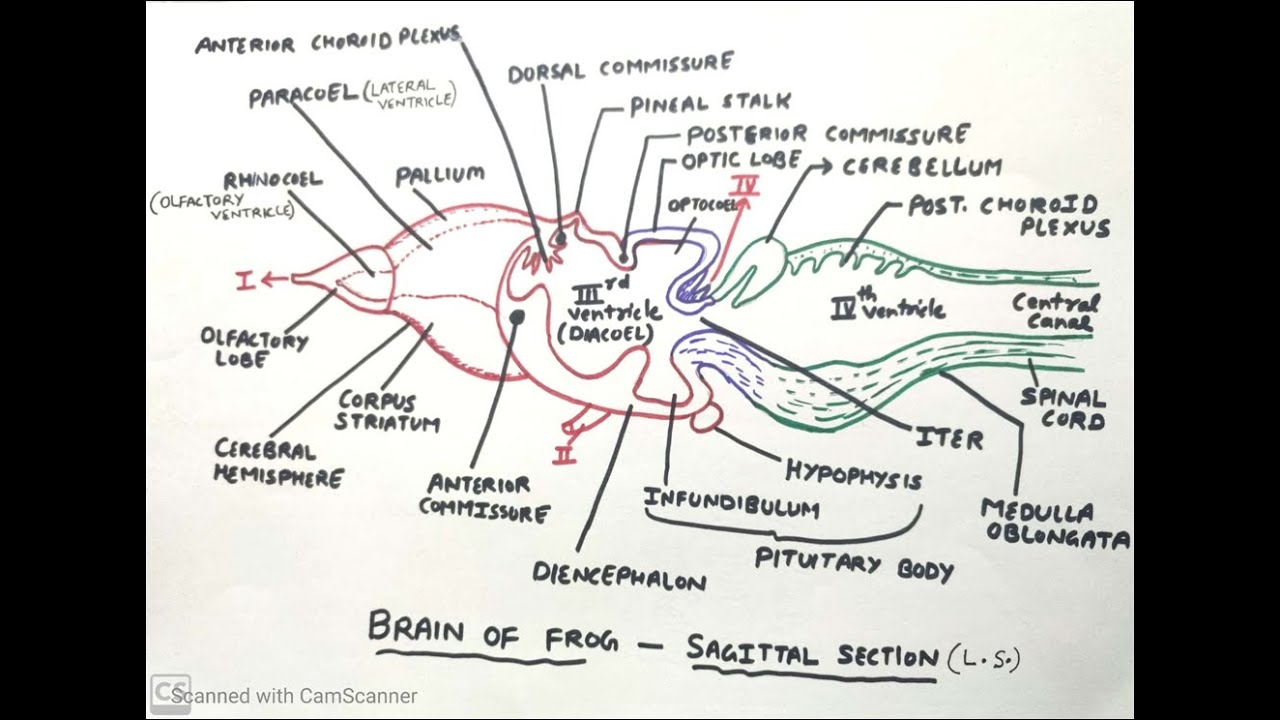 ANTERIOR CHOROID PLEXUS
DORSAL COMMISSURE
PARACOEL (LATERAL
VENTRICLE)
PINEAL STALK
POSTERIOR COMMISSURE
OPTIC LOBE
CEREBELLUM
RHINOCOEL
(OLFACTORY
VENTRICLE)
PALLIUM
IV
OPTOCOEL
POST. CHOROID
PLEXUS
I
IIIrd
ventricle
(DIACOEL)
IVth
ventricle
Central
Canal
OLFACTORY
LOBE
CORPUS
STRIATUM
SPINAL
CORD
CEREBRAL
HEMISPHERE
II
ITER
ANTERIOR
COMMISSURE
HYPOPHYSIS
INFUNDIBULUM
MEDULLA
OBLONGATA
PITUITARY BODY
DIENCEPHALON
BRAIN OF FROG — SAGITTAL SECTION (L.S.)
CS
Scanned with CamScanner